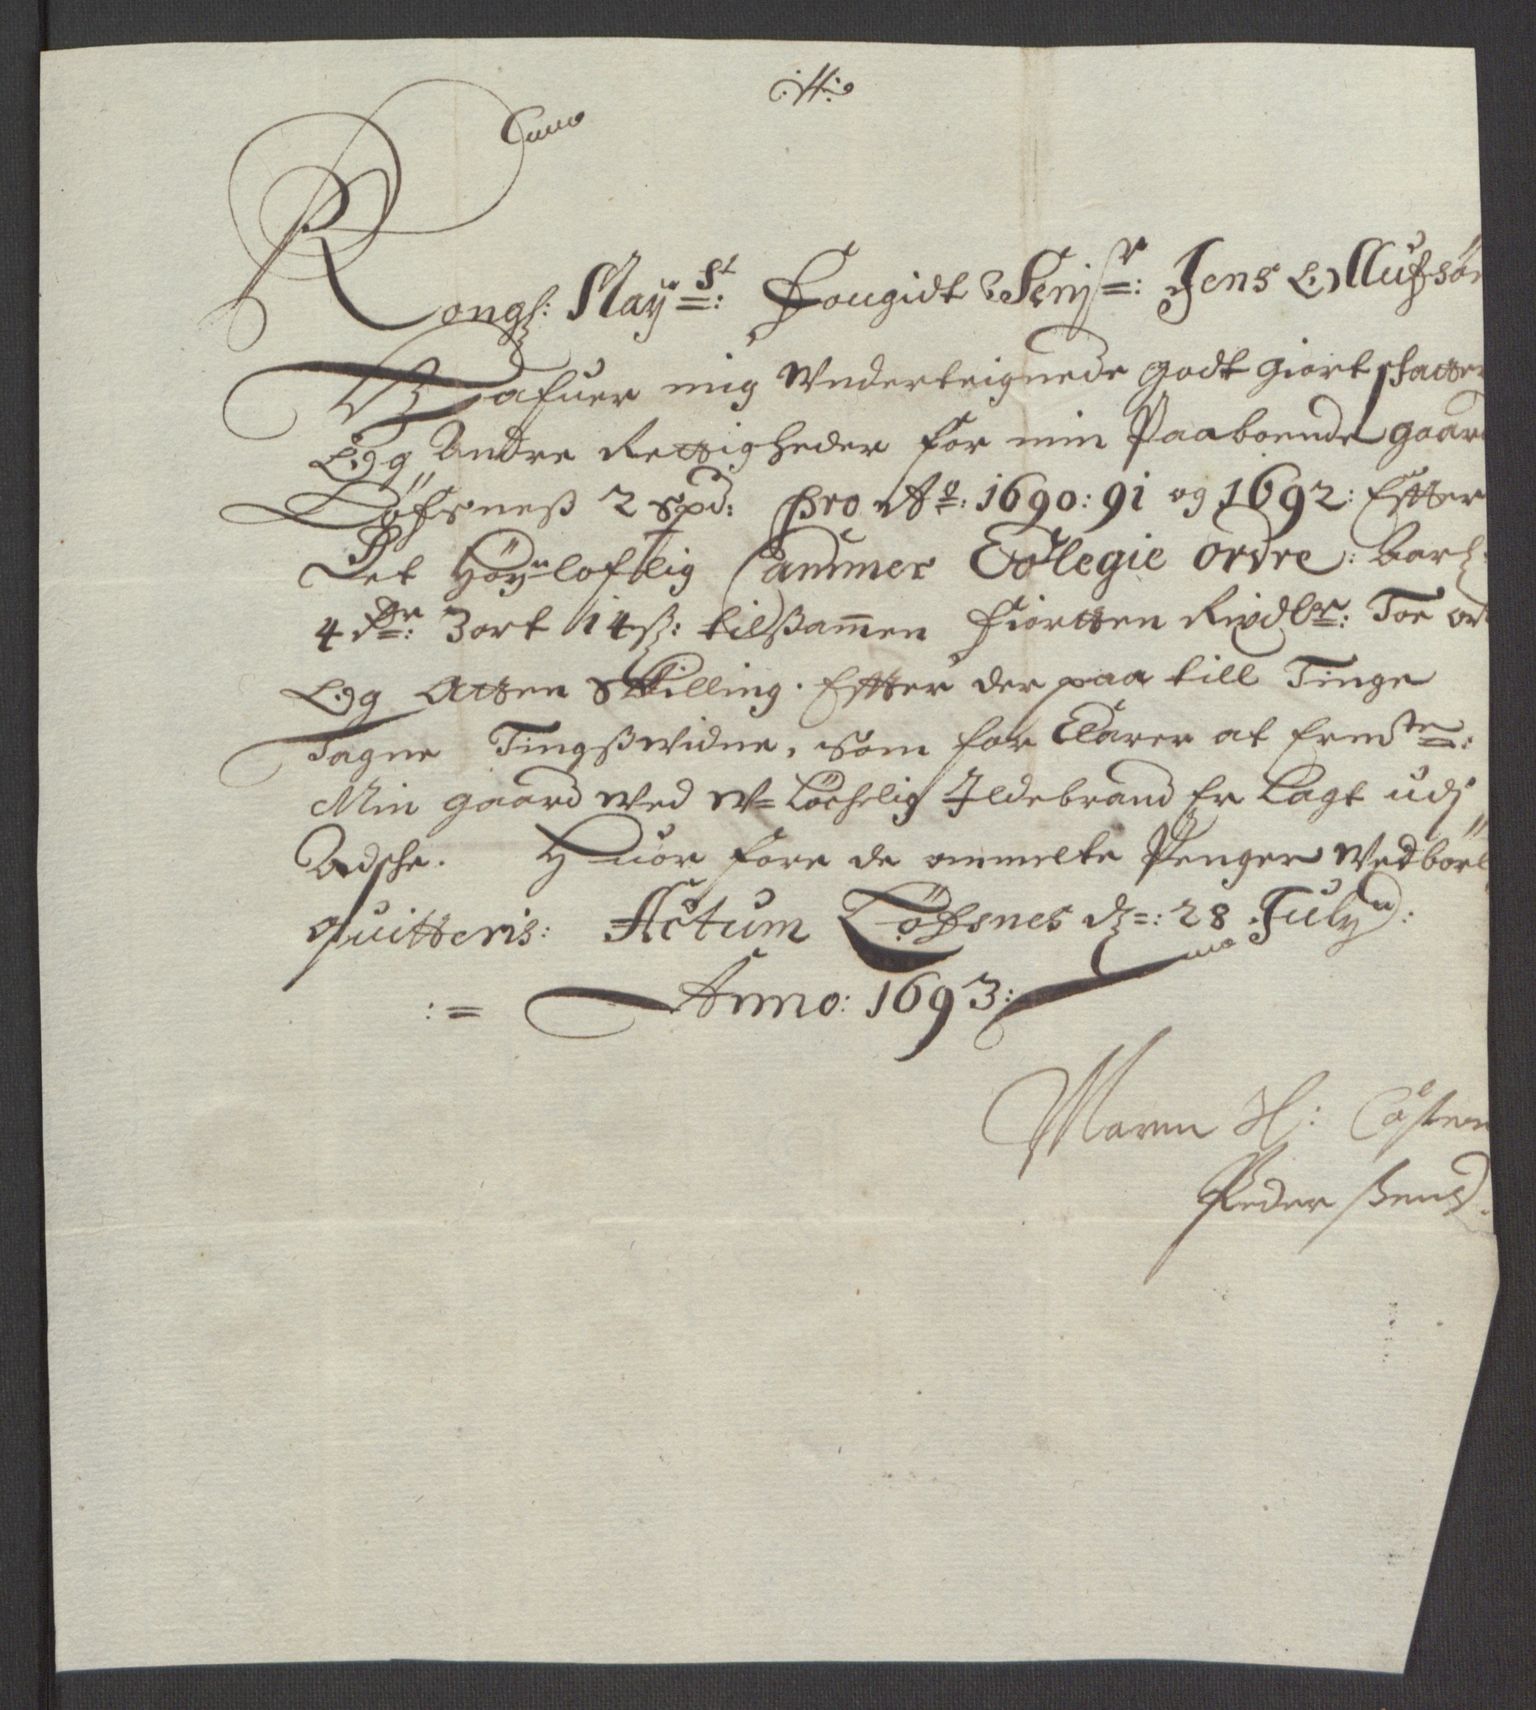 Kongl: May:st: Fougidt Senj:r: Jens Olluf̅sön
Hafuer mig Underteignede godt giort skatter
Og Andre Rettigheder for min Paaboende gaard
Löfsneß 2 spd: pro Ao: 1690: 91 og 1692: Effter
Det höy=loflig Cammer Collegie ordre: Aarl:
4 dr: 3 ort 14 ß: tilßam̅en Fiortten Rixdlr: Toe ort
Og Atten Skilling. Effter der paa till Tinge
Tagne Tingßwidne, som for Clarer at Ermte:
Min gaard wed W=löchelig Ildebrand Er Lagt udj
Adsche. Huor fore de ommelte Penger Wedbörl
quitteris: Actum Löfsnes d: 28 July:
:= Anno: 1693:
Maren Sl:
Peder